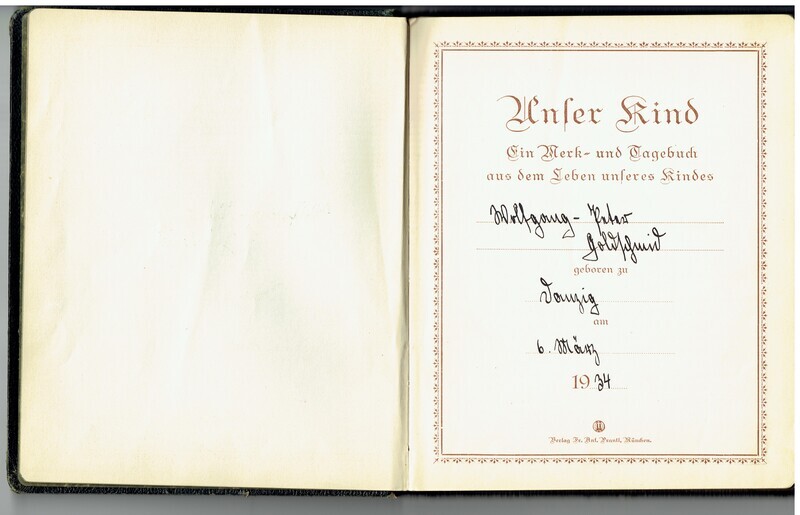 Unser Kind
Ein Merk- und Tagebuch
aus dem Leben unseres Kindes
Wolfgang - Peter
Goldschmid
geboren zu
Danzig
am
6. März
1934
Verlag Fr. Ant. Prantl, München.